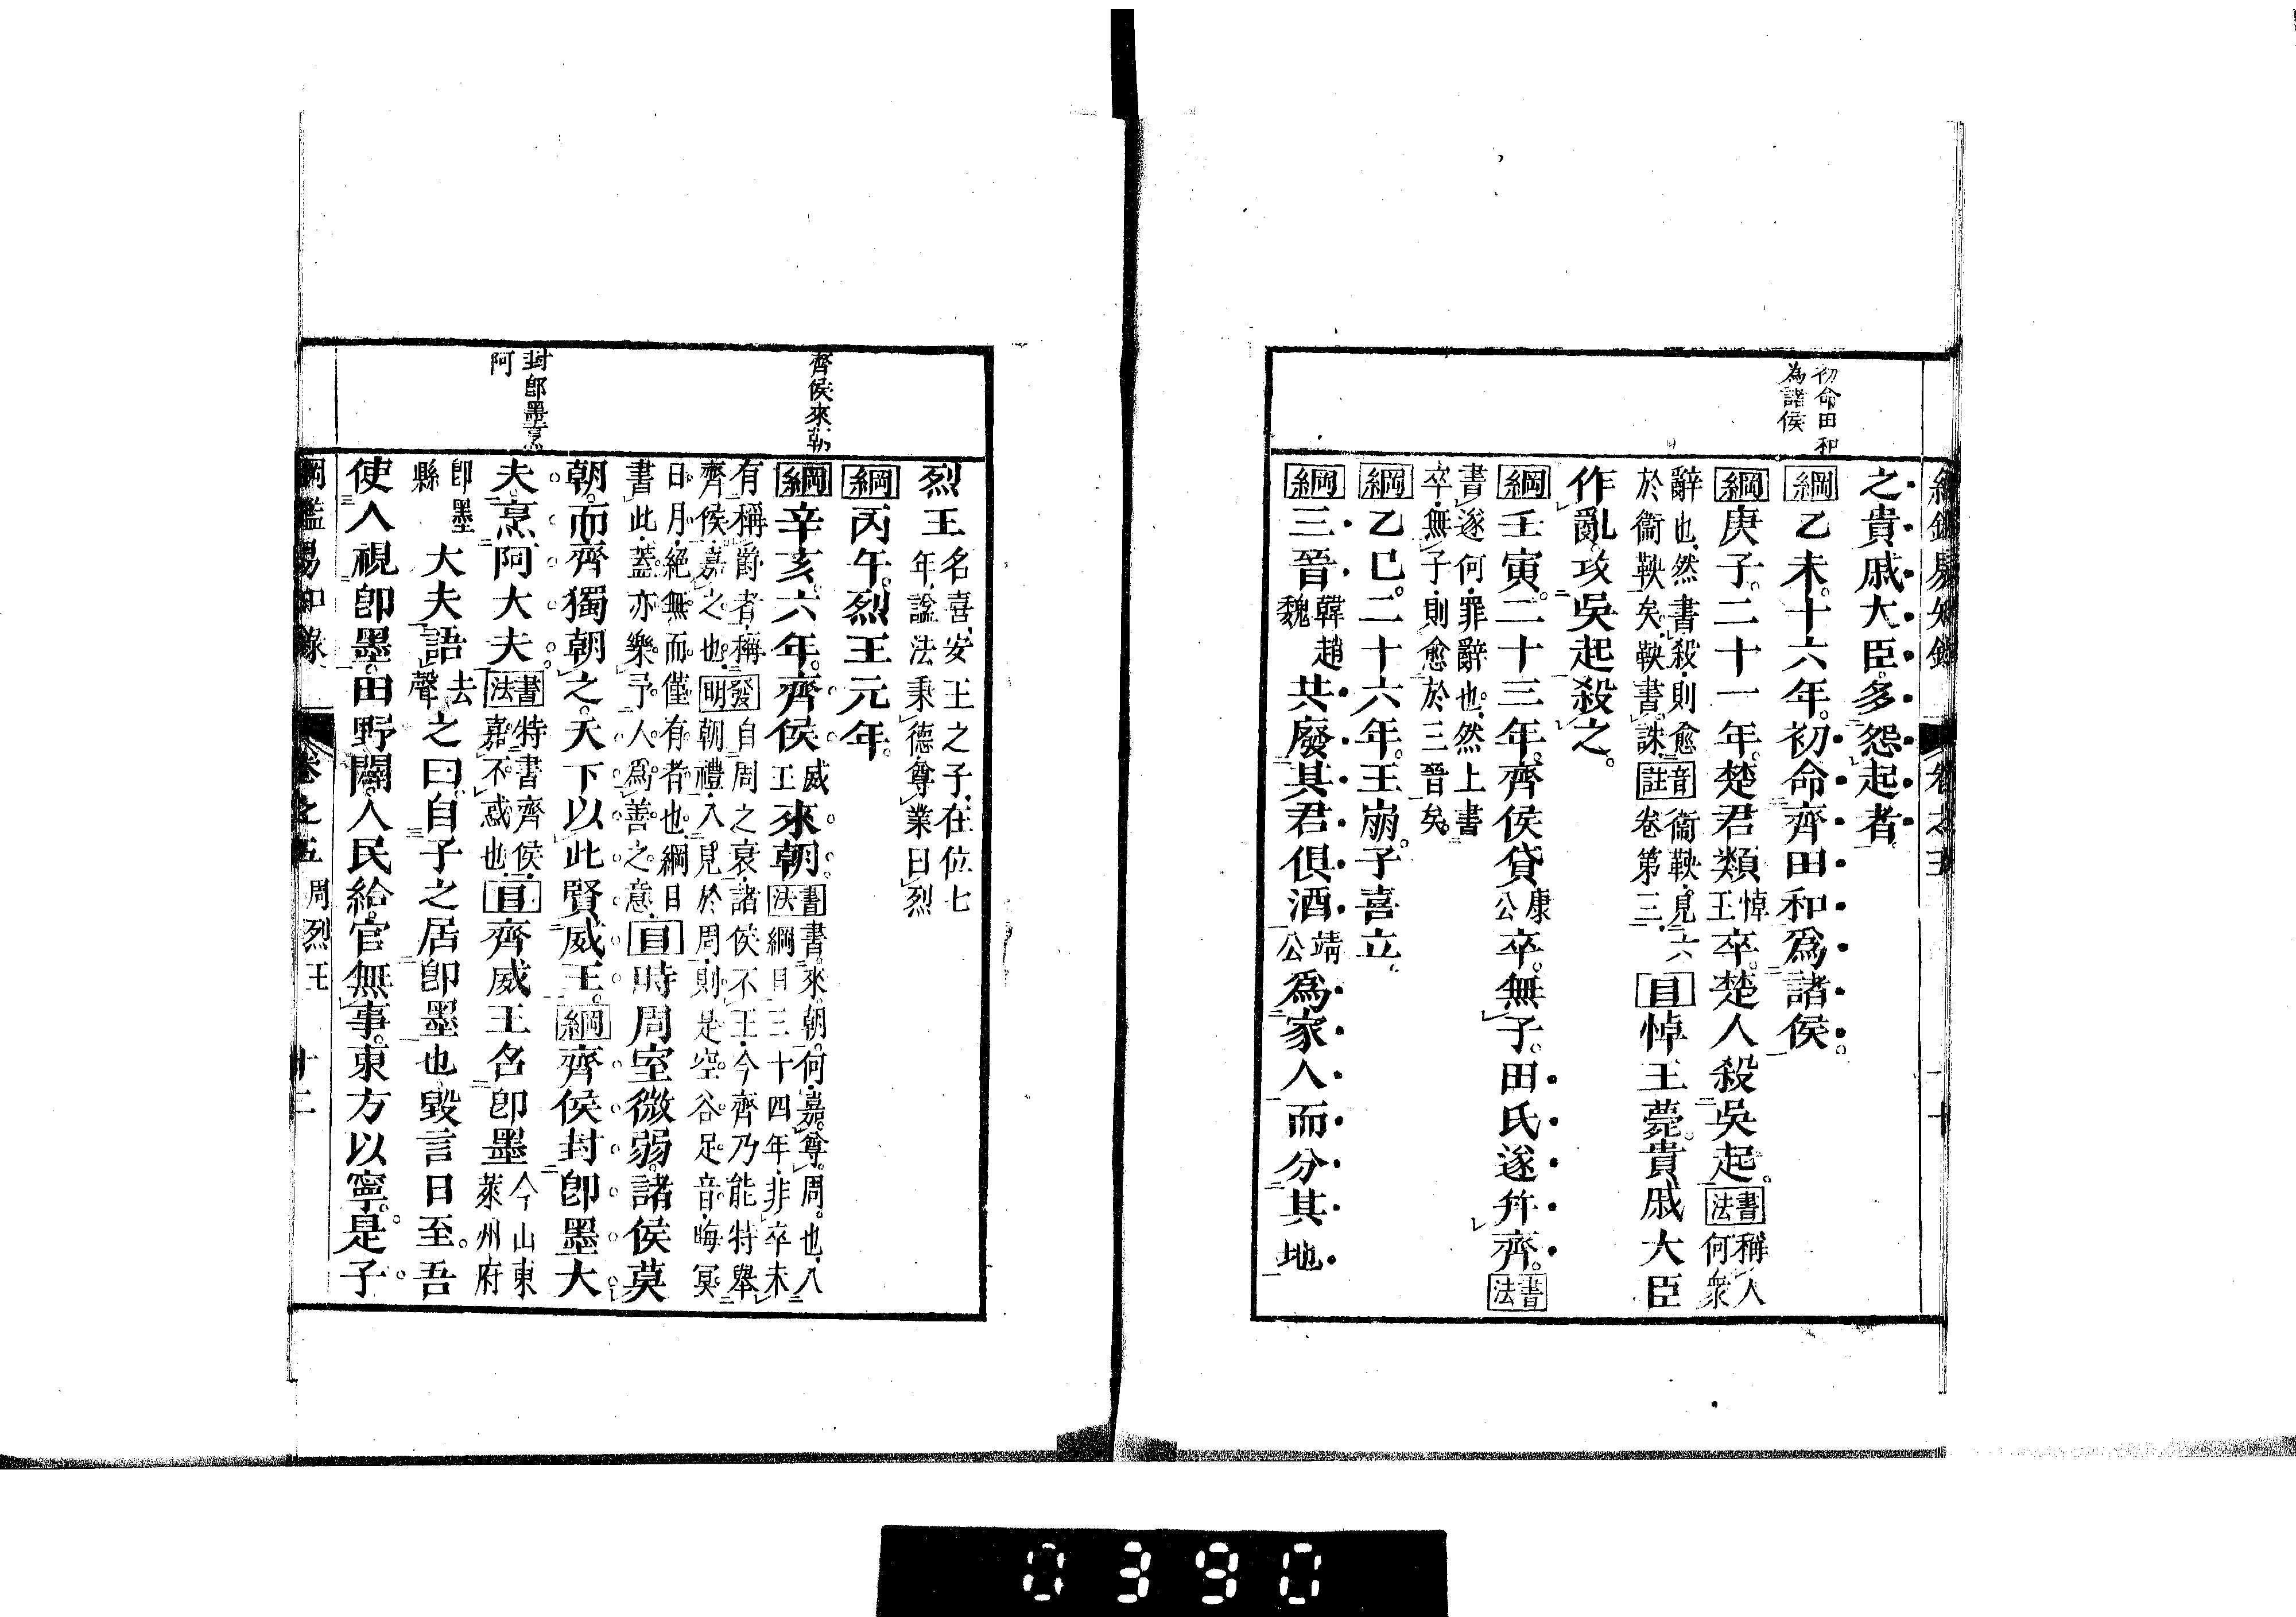 初命田和
為諸侯
之貴戚大臣多怨起者
綱乙未十六年初命齊田和爲諸侯
綱庚子二十一年楚君類悼王卒楚人殺吳起書法稱人何衆
辭也然書殺則愈於衞鞅矣鞅書誅音註衞鞅見六卷第三目悼王薨貴戚大臣
作亂攻吳起殺之
綱壬寅二十三年齊侯貸康公卒無子田氏遂幷齊書法
書遂何罪辭也然上書卒無子則愈於三晉矣
綱乙巳二十六年王崩子喜立
綱三晉韓趙魏共廢其君俱酒靖公爲家人而分其地
齊侯來朝
封卽墨烹
阿
烈王名喜安王之子在位七年諡法秉德尊業曰烈
綱丙午烈王元年
綱辛亥六年齊侯威王來朝書法書來朝何嘉尊周也入綱目三十四年非卒未
有稱爵者稱齊侯嘉之也發明自周之衰諸侯不王今齊乃能特舉朝禮入見於周則是空谷足音晦冥
日月絕無而僅有者也綱目書此蓋亦樂予人爲善之意目時周室微弱諸侯莫
朝而齊獨朝之天下以此賢威王綱齊侯封卽墨大
夫烹阿大夫書法特書齊侯嘉不惑也目齊威王名卽墨今山東萊州府
卽墨縣大夫語去聲之曰自子之居卽墨也毀言日至吾
使人視卽墨田野闢人民給官無事東方以寧是子
綱鑑易知錄 卷之五 周烈王 十二
0390